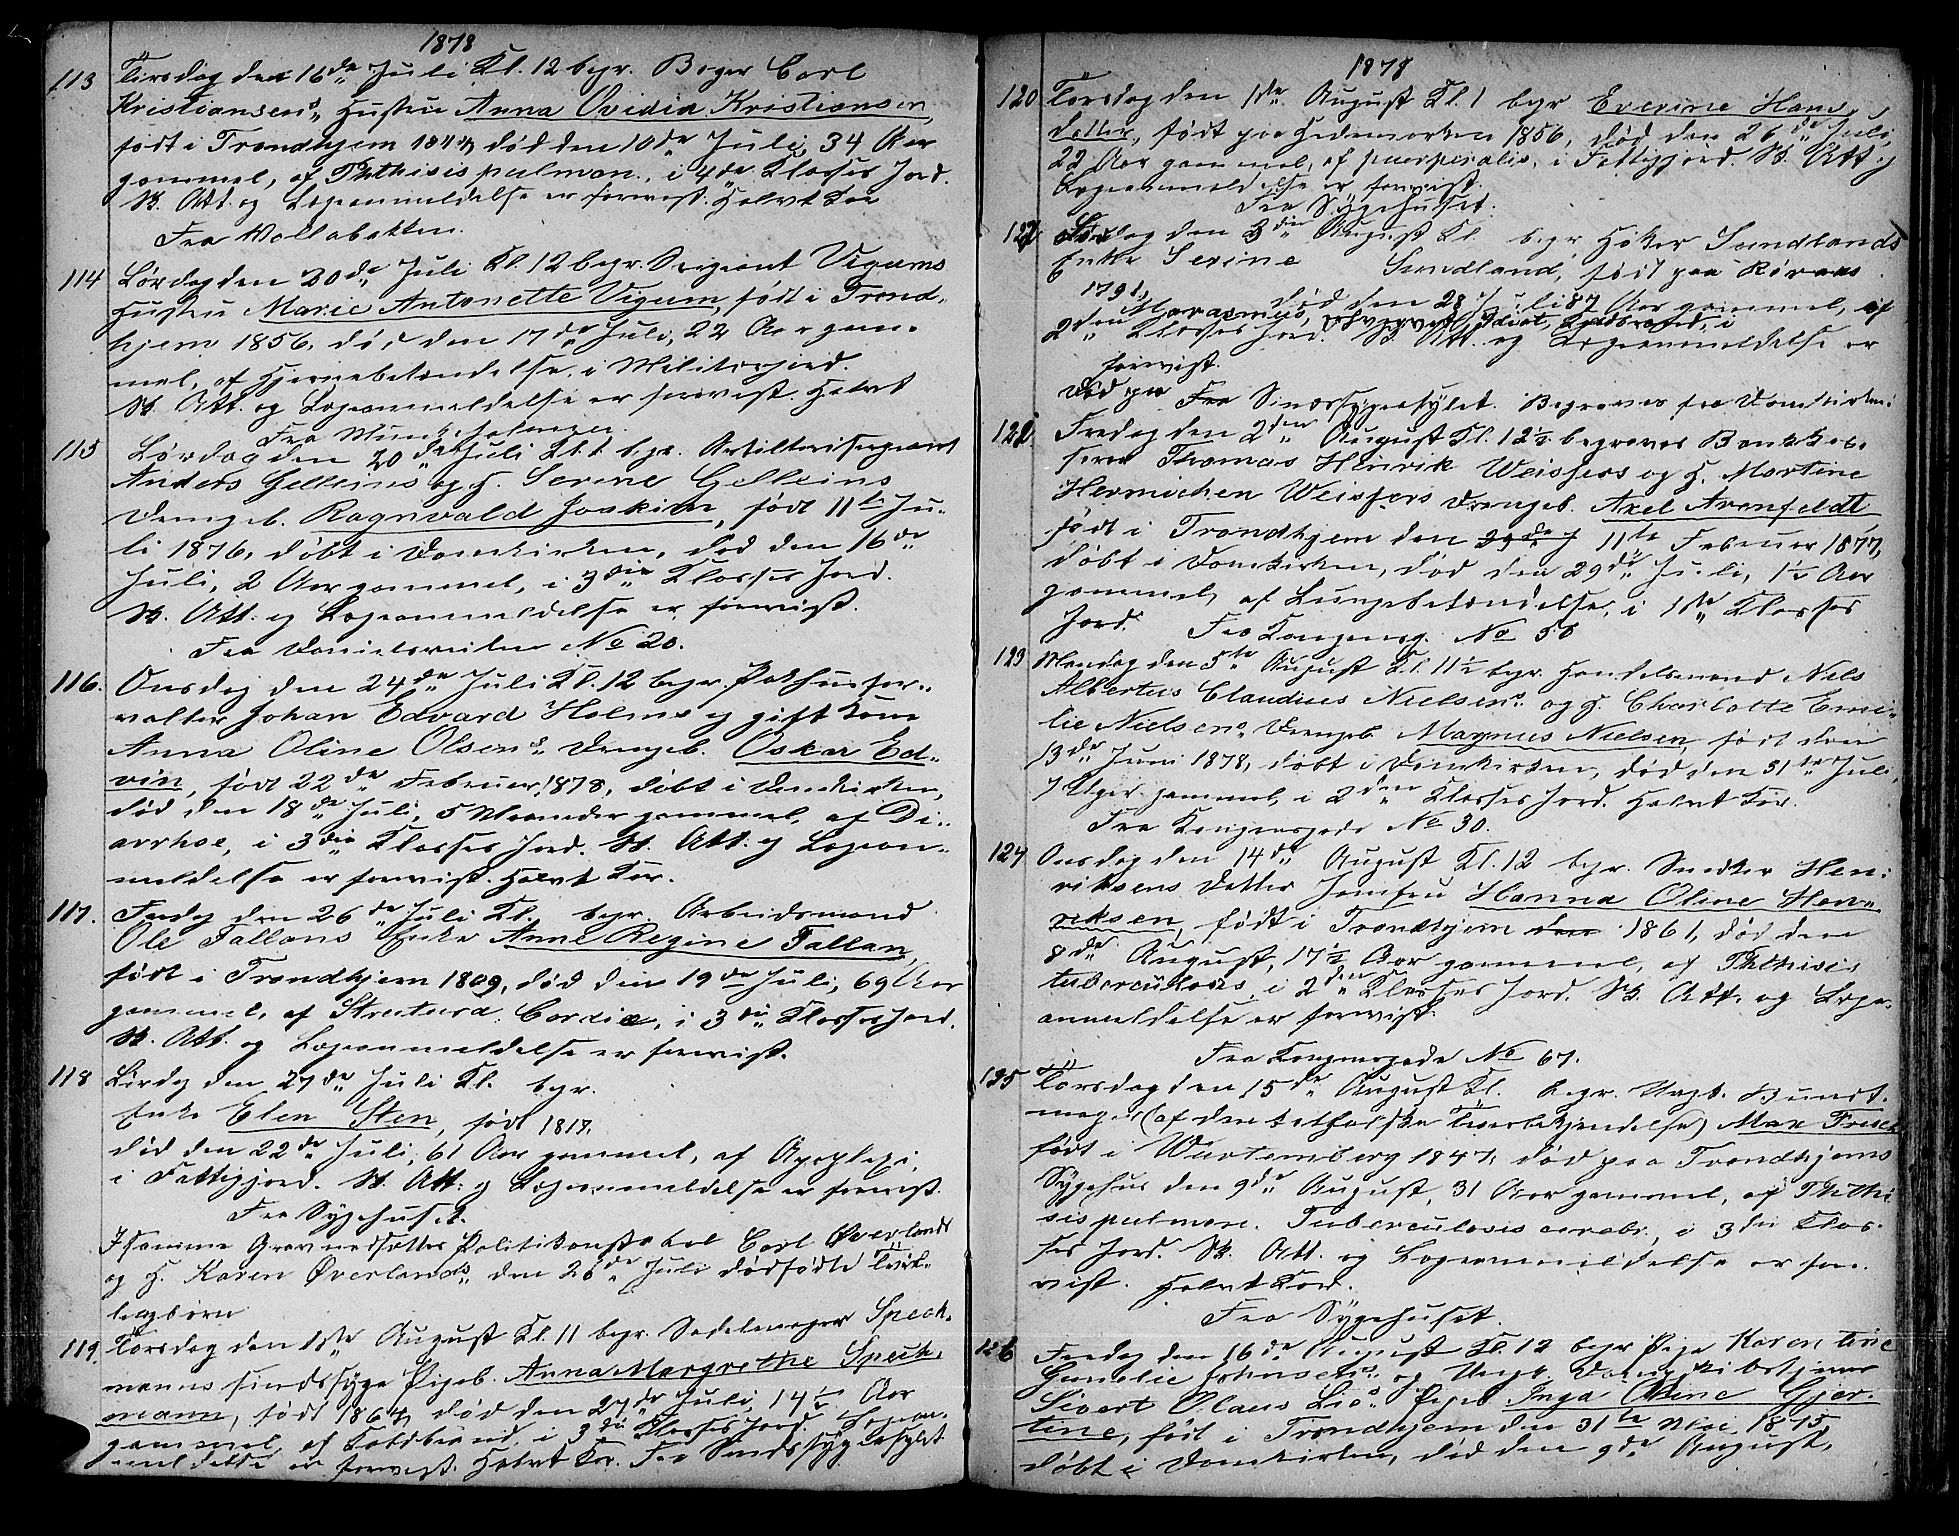 1878
113 Tirsdag den 16de Juli Kl. 12 begr. Bager Carl
Kristiansens Hustru Anna Ovidia Kristiansen,
født i Trondhjem 1844, død den 10de Juli, 34 Aar
gammel, af Phthisis pulmon., i 4de Klasses Jord.
Sk. Att. og Lægeanmeldelse er forevist. Halvt Kor
Fra Vollabakken.
114 Lørdag den 20de Juli Kl. 12 begr. Sergeant Vigums
Hustru Marie Antonette Vigum, født i Trond-
hjem 1856, død den 17de Juli, 22 Aar gam-
mel, af Hjernebetændelse, i Militærjord.
Sk. Att. og Lægeanmeldelse er forevist. Halvt
Fra
115 Lørdag den 20de Juli Kl. 1 begr. Artillerisergeant
Anders Gelleins og H. Serine Gelleins
Drengeb. Ragnvald Joakim, født 11te Ju-
li 1876, døbt i Domkirken, død den 16de
Juli, 2 Aar gammel, i 3die Klasses Jord.
Sk. Att. og Lægeanmeldelse er forevist.
Fra Danielsveiten No 20.
116. Onsdag den 24de Juli Kl. 12 begr. Pakhusfor-
valter Johan Edvard Holms og gift Kone
Anna Oline Olsens Drengeb. Oskar Ed-
vin, født 22de Februar 1878, døbt i Domkirken,
død den 18de Juli, 5 Maaneder gammel, af Di-
arrhoe, i 3die Klasses Jord. Sk. Att. og Lægean-
meldelse er forevist. Halvt Kor.
117. Fredag den 26de Juli Kl. begr. Arbeidsmand
Ole Fallans Enke Anne Regine Fallan,
født i Trondhjem 1809, død den 19de Juli, 69 Aar
gammel, af Strutura Cordia, i 3die Klasses Jord.
Sk. Att. og Lægeanmeldelse er forevist.
118 Lørdag den 27de Juli Kl. begr.
Enke Elen Sten, født 1817,
død den 22de Juli, 61 Aar gammel, af Apoplexi,
i Fattigjord. Sk. Att. og Lægeanmeldelse er forevist.
Fra Sygehuset.
I samme Grav nedsættes Politikonstabel Carl Øverlands
og H. Karen Øverlands den 26de Juli dødfødte Tvil-
lingbørn
119. Torsdag den 1ste August Kl. 11 begr. Sadelmager Speck-
manns sindssyge Pigeb. Anna Margrethe Speck-
mann, født 1864, død den 27de Juli, 14½ Aar
gammel, af Koldbrand, i 3die Klasses Jord. Lægean-
meldelse er forevist. Halvt Kor. Fra Sindssygeasylet
1878
120 Torsdag den 1ste August Kl. 1 begr. Everine Hans-
datter, født paa Hedemarken 1856, død den 26de Juli,
22 Aar gammel, af puerperalis, i Fattigjord. Sk. Att. og
Lægeanmeldelse er forevist.
Fra Sygehuset.
121 Lørdag den 3die August Kl. begr. Høker Sundlands
Enke Serine Sundland, født paa Røraas
1791, død den 28 Juli 87 Aar gammel, af
Marasmus, Idiot, i
2den Klasses Jord. Sk. Att. og Lægeanmeldelse er
forevist.
Død paa Fra Sindssygeasylet. Begraves fra Domkirken.
122 Fredag den 2den August Kl. 12½ begraves Bankkas-
serer Thomas Henrik Weisfers og H. Martine
Hermichen Weisfers Drengeb. Axel Arenfeldt
født i Trondhjem den 11te Februar 1877,
døbt i Domkirken, død den 29de Juli, 1½ Aar
gammel, af Lungebetændelse, i 1ste Klasses
Jord. Fra Kongensg. No 56
123 Mandag den 5te August Kl. 11½ begr. Handelsmand Nils
Albertus Claudius Nielsens og H. Charlotte Emi-
lie Nielsens Drengeb. Magnus Nielsen, født den
13de Juni 1878, døbt i Domkirken, død den 31te Juli,
7 Uger gammel, i 2den Klasses Jord. Halvt Kor.
Fra Kongensgade No 30.
124 Onsdag den 14de August Kl. 12 begr. Snedker Hen-
riksens Datter Jomfru Hanna Oline Hen-
riksen, født i Trondhjem den 1861, død den
8de August, 17½ Aar gammel, af Phthisis
tuberculosis, i 2den Klasses Jord. Sk. Att. og Læge-
anmeldelse er forevist.
Fra Kongensgade No 67.
125 Torsdag den 15de August Kl. begr. Ungk. Bundt-
mager (af den katholske Troesbekjendelse) Max Frisch
født i Würtemberg 1847, død paa Trondhjems
Sygehus den 9de August, 31 Aar gammel, af Phthi-
sis pulmon. Tuberculosis cerebr., i 3die Klas-
ses Jord. Sk. Att. og Lægeanmeldelse er fore-
vist. Halvt Kor.
Fra Sygehuset.
126 Fredag den 16de August Kl. 12 begr. Pige Karen Eline
Gunelie Johnsens og Ungk.
Sivert Olaus Lies Pigeb. Inga Oline Gjer-
tine, født i Trondhjem den 31te Mai 1875
døbt i Domkirken, død den 9de August,